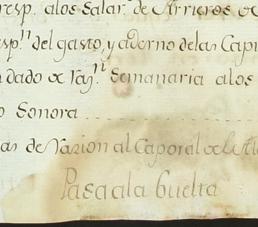 resp. alos Salar.s de Arrieros &
esp.n del gasto, y aderno delas Capi
n dado & raz.n Semanaria alos
o Sonora
as de Racion al Caporal & la
Pasa ala buelta